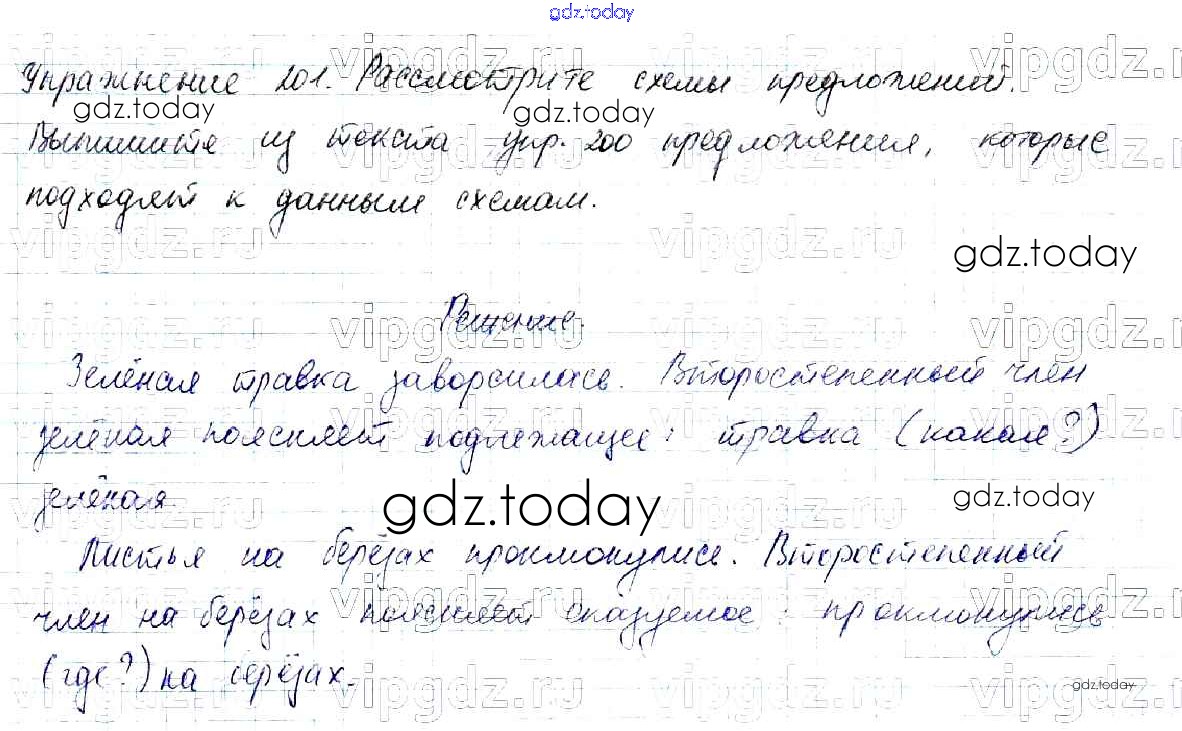 gdz.today
Упражнение 201. Рассмотрите схемы предложений.
gdz.today gdz.today
Выпишите из текста упр. 200 предложения, которые
подходят к данным схемам.
vipgdz.ru vipgdz.ru vipgdz.ru
gdz.today
Решение.
Зелёная травка заворсилась. Второстепенный член
зелёная поясняет подлежащее: травка (какая?)
зелёная
gdz.today gdz.today
Листья на берёзах проклюнулись. Второстепенный
член на берёзах поясняет сказуемое: проклюнулись
(где?) на берёзах.
gdz.today